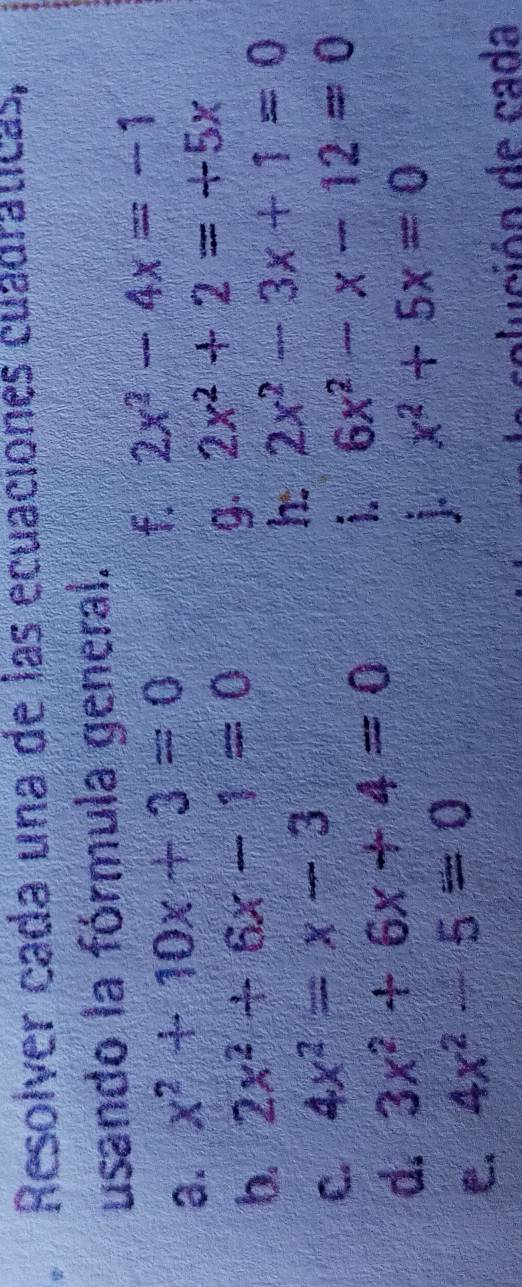 Resolver cada una de las ecuaciones cuadráticas,
usando la fórmula general.
a. x² + 10x + 3 = 0
b. 2x² + 6x - 1 = 0
c. 4x² = x - 3
d. 3x² + 6x + 4 = 0
e. 4x² - 5 = 0
f. 2x² - 4x = -1
g. 2x² + 2 = +5x
h. 2x² - 3x + 1 = 0
i. 6x² - x - 12 = 0
j. x² + 5x = 0
solución de cada